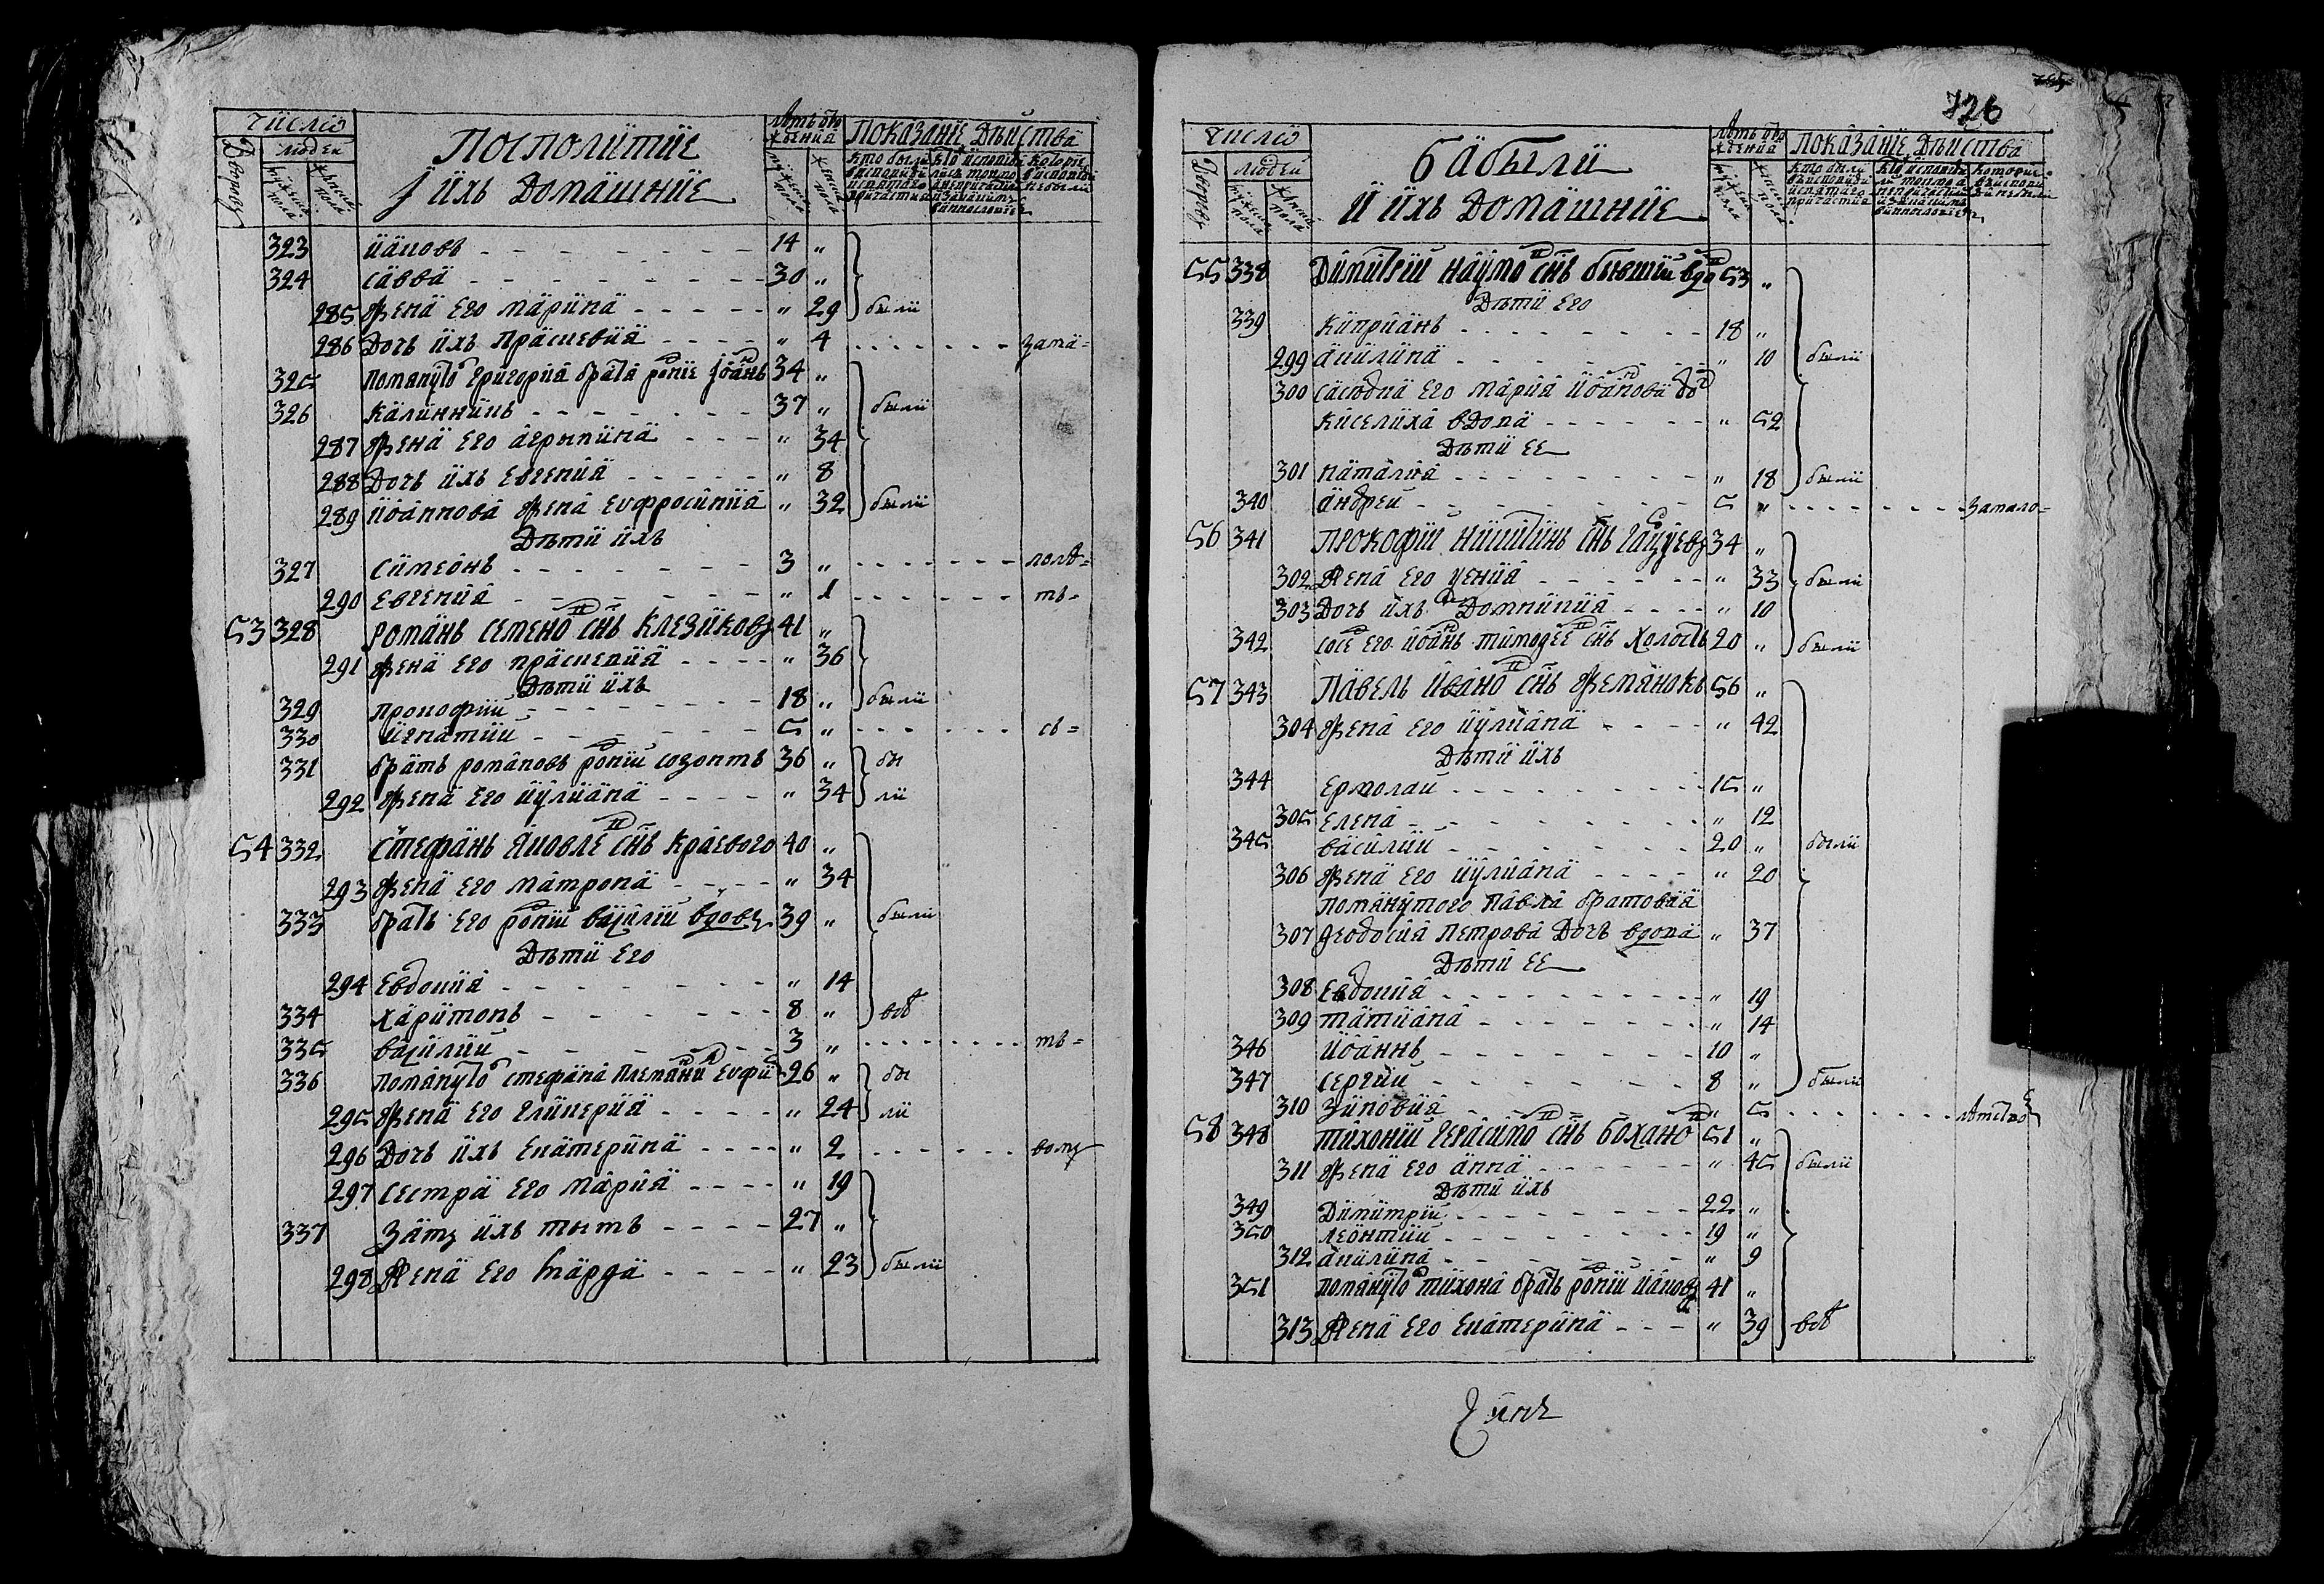 число
Дворовъ
людей
мужеска пола
женска пола
посполитие
і ихъ домашние
лѣтъ от рождения
мужеска пола
женска пола
показание дѣйства
323 Иаковъ - - - 14 „
324 Савва - - - 30 „
285 жена его Марина - - - „ 29 были
286 Дочъ ихъ Праскевия - - - „ 4 - - - зама=
325 помянуто григория брата родние Іоанъ 34 „
326 Калинникъ - - - 37 „ были
287 жена его агрыпина - - - „ 34
288 Дочъ ихъ Евгения - - - „ 8
289 Иоаннова жена Еуфросиния „ 32 были
Дѣти ихъ
327 Симеонъ - - - 3 „ - - - лолѣ=
290 Евгения - - - „ 1 - - - тъ=
53 328 Романъ Семено снъ Клезиковъ 41 „
291 жена его праскевия - - - „ 36
Дѣти ихъ
329 прокофий - - - 18 „ были
330 Игнатий - - - 5 „ - - - съ=
331 братъ романовъ родний созонтъ 36 „ бы
292 жена его иулиана - - - „ 34 ли
54 332 Стефанъ Яковле снъ Краевого 40 „
293 жена его матрона - - - „ 34
333 братъ его родний василий вдовъ 39 „ были
Дѣти его
294 Евдокия - - - „ 14
334 Харитонъ - - - 8 „ всѣ
335 василий - - - 3 „ - - - тъ=
336 помянуто стефана племяни Еуфи 26 „ бы
295 жена его гликерия - - - „ 24 ли
296 Дочъ ихъ Екатерина - - - „ 2 - - - вому
297 сестра его мария - - - „ 19
337 Зять ихъ титъ - - - 27 „
298 Жена его марфа - - - „ 23 были
726
число
Дворовъ
людей
мужеска пола
женска пола
бабыли
и ихъ домашние
лѣтъ от рождения
мужеска пола
женска пола
показание дѣйства
55 338 Димитрий Наумо снъ бывший вдо 53 „
Дѣти его
339 Киприанъ - - - 18 „
299 акилина - - - „ 10 были
300 сасюдка его мария иоанова до
киселиха вдова - - - „ 52
Дѣти ее
301 наталия - - - „ 18 были
340 андрей - - - 5 „ - - - замало=
56 341 прокофий никитинъ снъ 34 „
302 Жена его - - - „ 33 были
303 Дочъ ихъ Домникия - - - „ 10
342 сосе его иоанъ тимофее снъ холостъ 20 „ были
57 343 павелъ ивано снъ 56 „
304 жена его иулиана - - - „ 42
Дѣти ихъ
344 Ермолай - - - 15 „
305 Елена - - - „ 12
345 василий - - - 20 „ были
306 жена его иулиана - - - „ 20
помянутого павла братовая
307 феодосия петрова дочъ вдова „ 37
Дѣти ее
308 Евдокия - - - „ 19
309 татиана - - - „ 14
346 иоаннъ - - - 10 „
347 сергий - - - 8 „ были
310 Зиновия - - - „ 5 - - - лѣтство
58 348 тихоний герасимо снъ бохано 51 „
311 жена его анна - - - „ 45 были
Дѣти ихъ
349 Димитрий - - - 22 „
350 леонтий - - - 19 „
312 акилина - - - „ 9
351 помянуто тихона братъ родний иаковъ 41 „
313 Жена его Екатерина - - - „ 39 всѣ